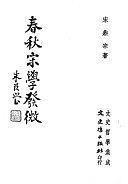 宋鼎宗著
文史哲學集成
文史哲出版社印行
春秋宋學發微